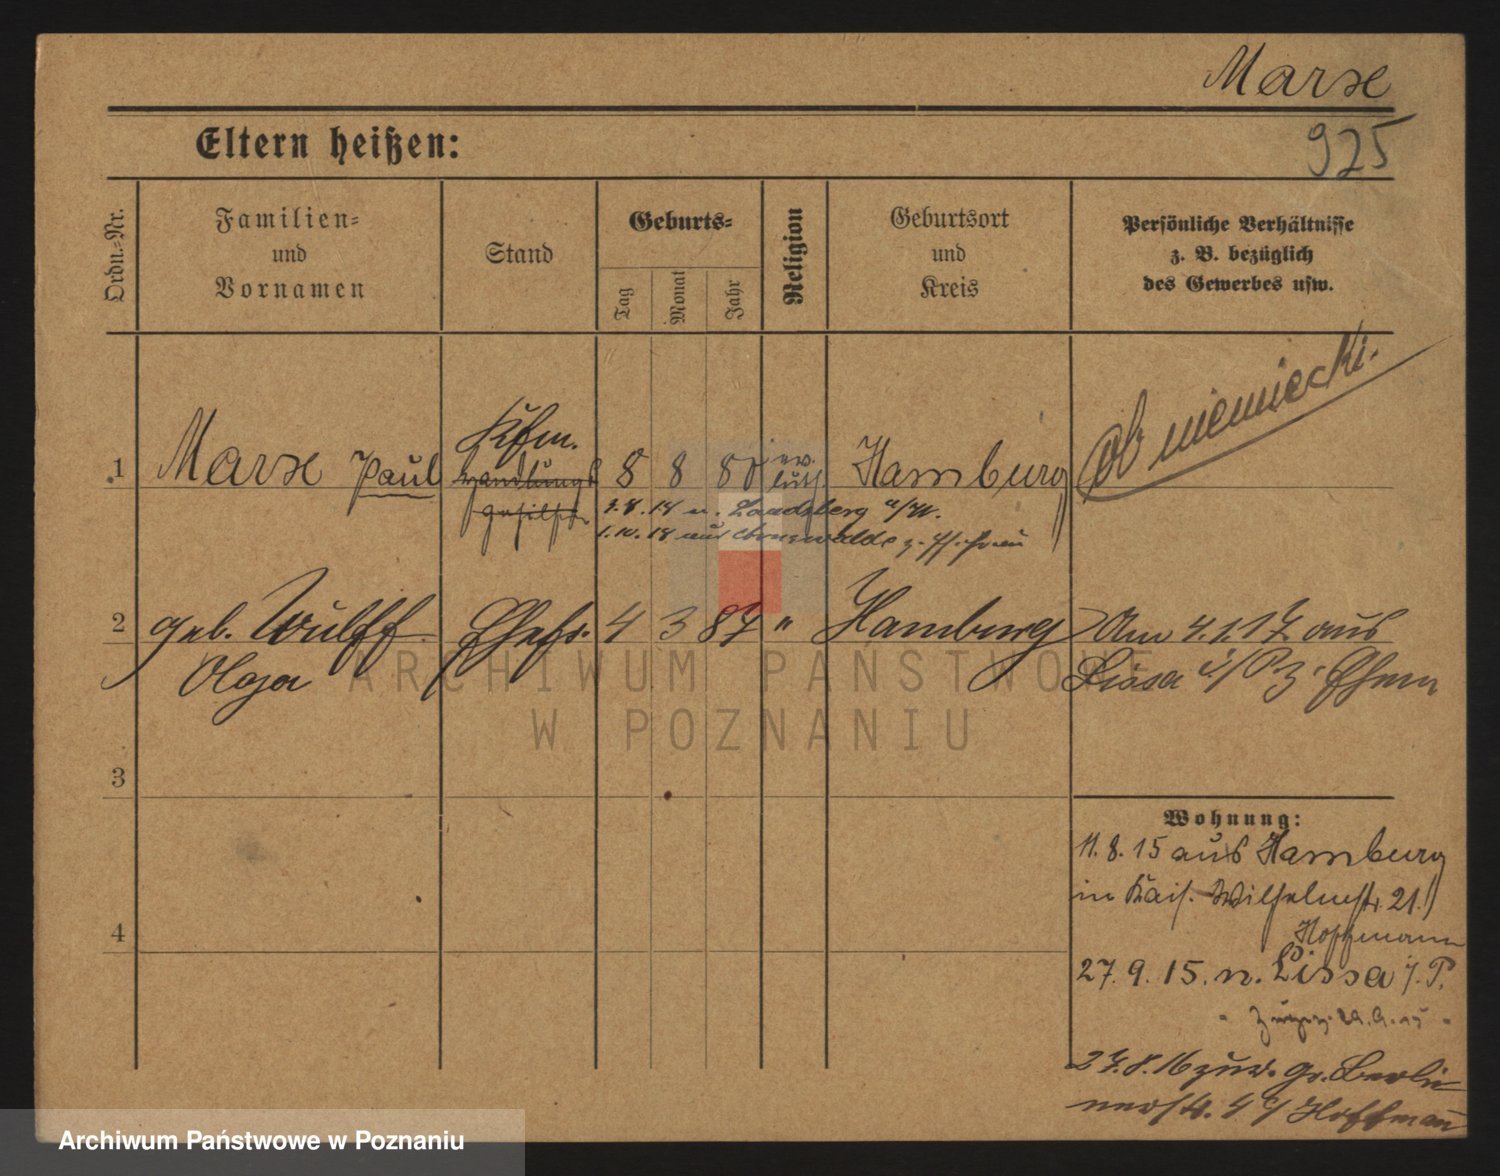 Marxe
925
Eltern heißen:
Ordn.-Nr.
Familien-
und
Vornamen
Stand
Geburts-
Tag
Monat
Jahr
Religion
Geburtsort
und
Kreis
Persönliche Verhältnisse
z. B. bezüglich
des Gewerbes usw.
ob niemiecki.
Kfm.
1 Marxe Paul Handlungs 8 8 80 ev. luth Hamburg
gehilfe
1.8.18 n. Landsberg a/W.
1.10.18 aus Arnswalde z.
2 geb. Wulff Ehefr. 4 3 87 " Hamburg Am 4.1.17 aus
Olga Lissa i/P z. Ehem
3
4
Wohnung:
11.8.15 aus Hamburg
in Kais. Wilhelmstr. 21.
Hoffmann
27.9.15. n. Lissa i. P.
27.8.16 zur. Gr. Berli
nerstr. 4 Hoffmann
ARCHIWUM PAŃSTWOWE
W POZNANIU
Archiwum Państwowe w Poznaniu